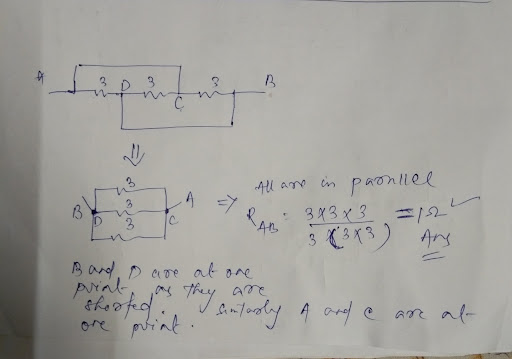 A 3 D 3 C 3 B
⇓
3
B D 3 C A ⇒ All are in parallel
3
R_AB : 3×3×3 / 3(3×3) = 1Ω ✓
Ans
B and D are at one
point as they are
shorted. Similarly A and C are at
one point.